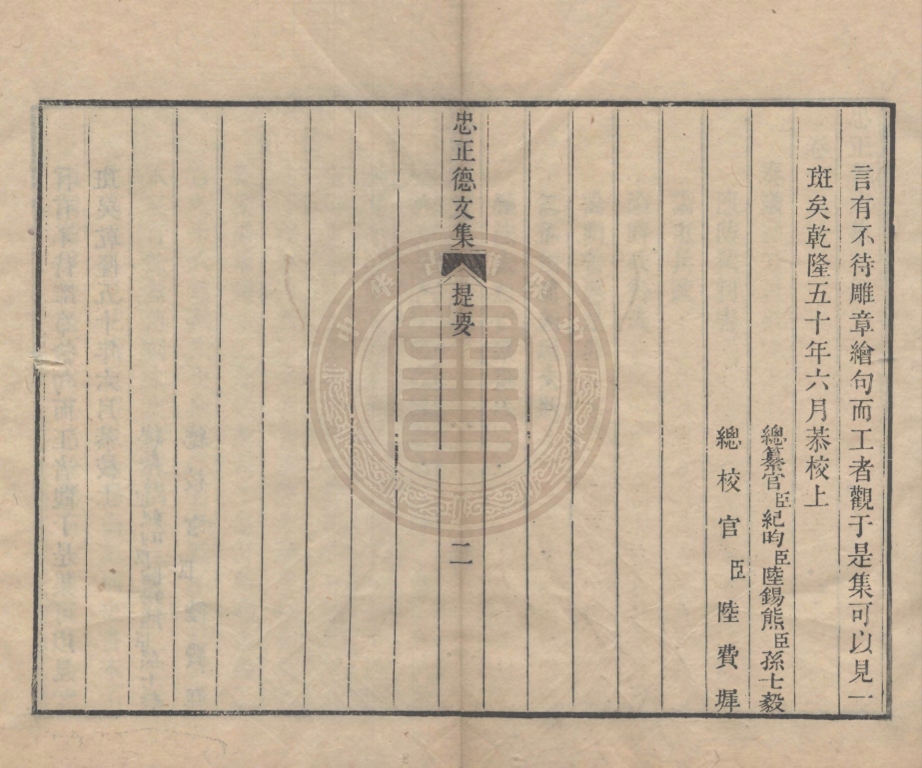 言有不待雕章繪句而工者觀于是集可以見一
斑矣乾隆五十年六月恭校上
總纂官臣紀昀臣陸錫熊臣孫士毅
總校官臣陸費墀
忠正德文集
提要
二